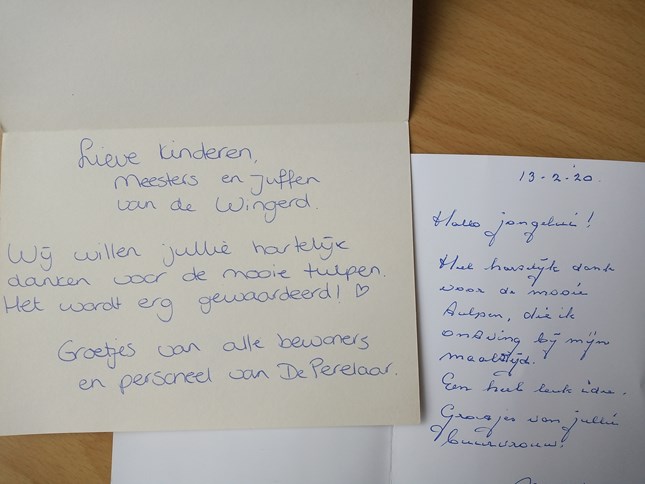 Lieve kinderen,
meesters en juffen
van de Wingerd.
Wij willen jullie hartelijk
danken voor de mooie tulpen.
Het wordt erg gewaardeerd! ♡
Groetjes van alle bewoners
en personeel van De Perelaar.
13-2-'20.
Hallo jongelui!
Heel hartelijk dank
voor de mooie
tulpen, die ik
ontving bij mijn
maaltijd.
Een heel leuk idee.
Groetjes van jullie
buurvrouw.